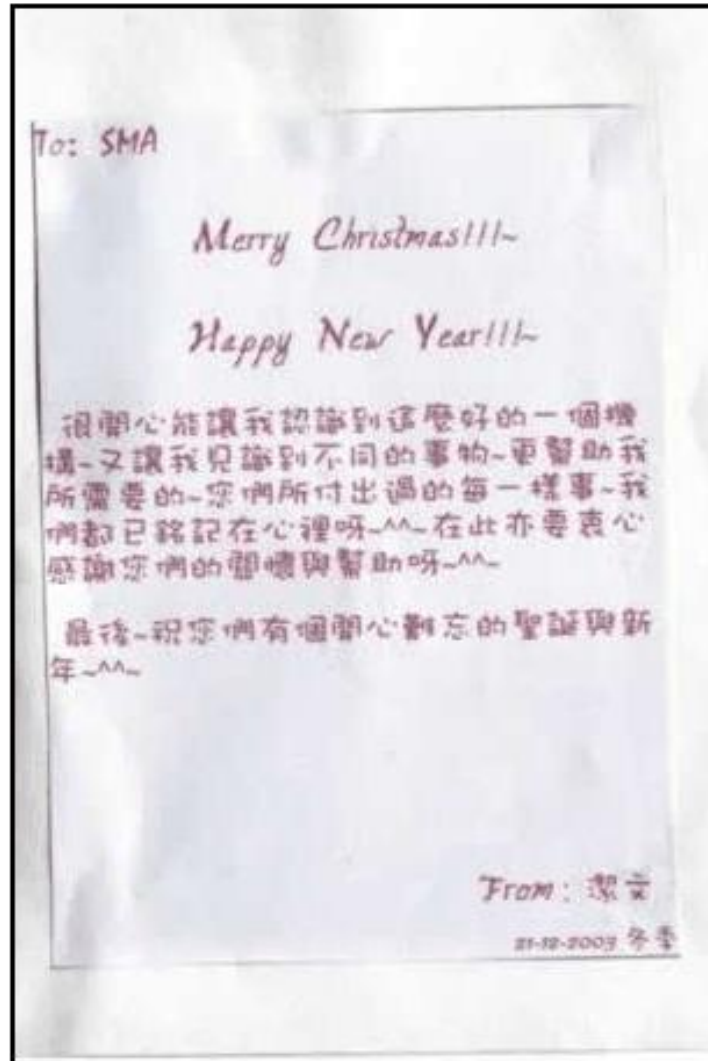 To: SMA
Merry Christmas!!!~
Happy New Year!!!~
很開心能讓我認識到這麼好的一個機
構~又讓我見識到不同的事物~更幫助我
所需要的~您們所付出過的每一樣事~我
們都已銘記在心裡呀~^^~在此亦要衷心
感謝您們的關懷與幫助呀~^^~
最後~祝您們有個開心難忘的聖誕與新
年~^^~
From: 潔文
21-12-2003 冬季